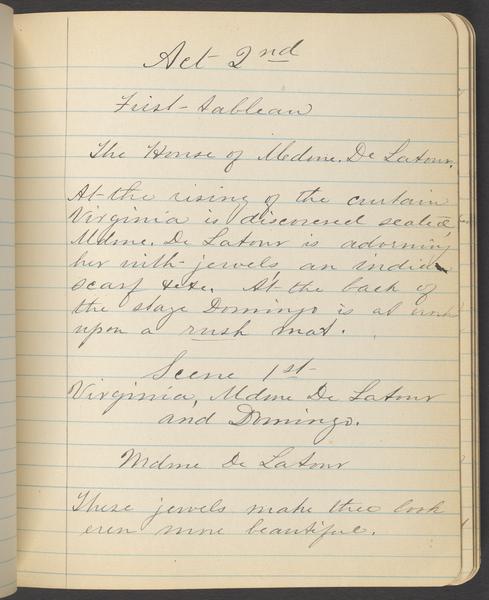 Act 2nd
First-tableau
The House of Medme. De Latour.
At the rising of the curtain
Virginia is discovered seated,
Mdme. De Latour is adorning
her with jewels, an indian
scarf &c&c. At the back of
the stage Domingo is at work
upon a rush mat.
Scene 1st
Virginia, Mdme De Latour
and Domingo.
Mdme De Latour
These jewels make thee look
even more beautiful.